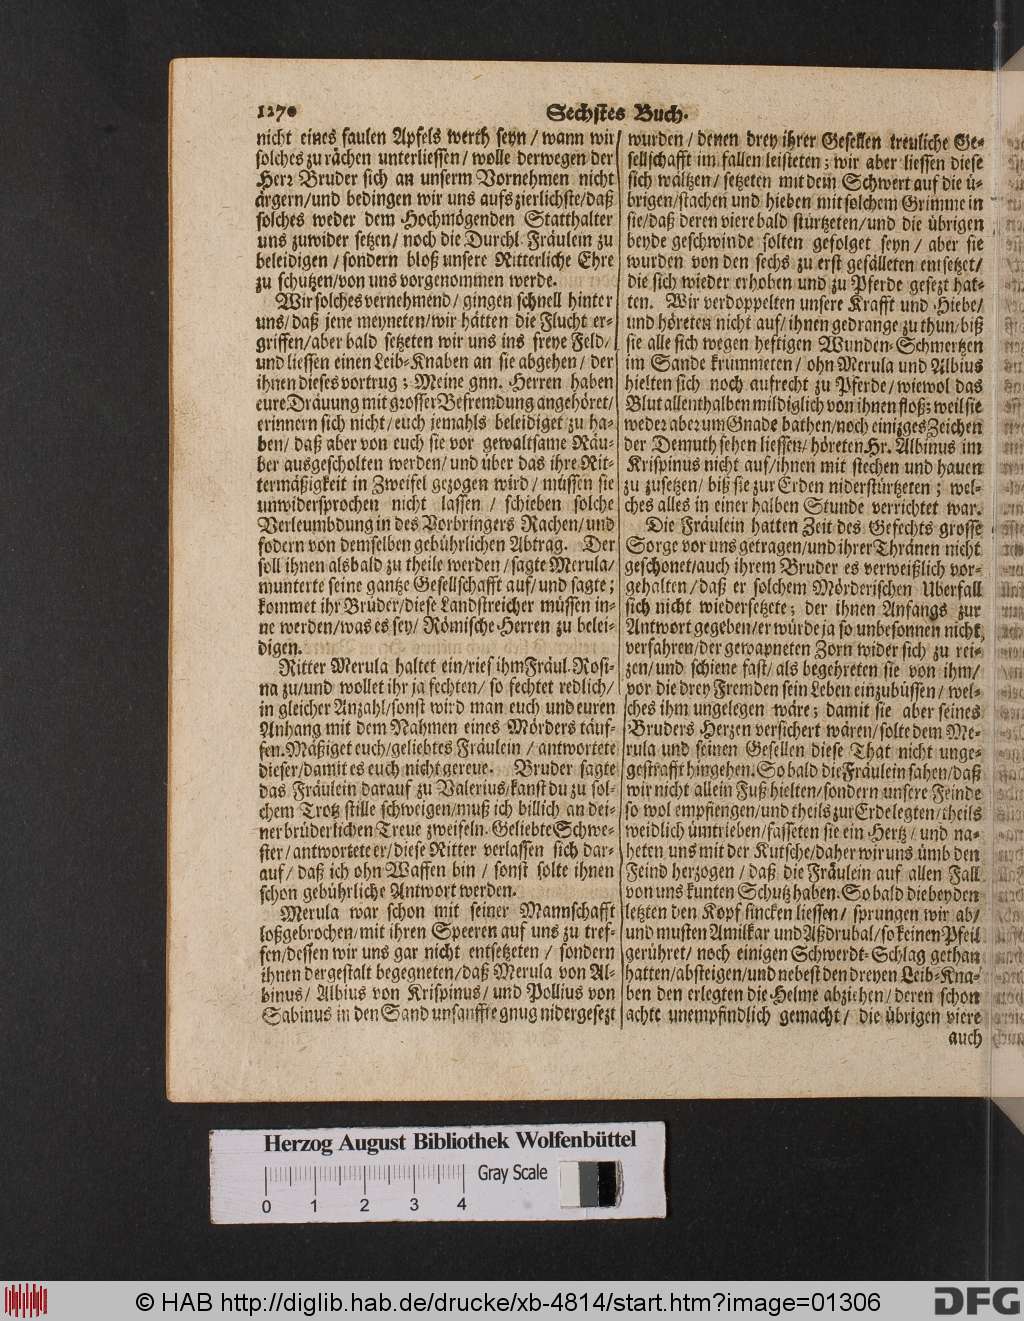 1270
Sechstes Buch.
nicht eines faulen Apfels werth seyn/ wann wir
solches zu rächen unterliessen/ wolle derwegen der
Herr Bruder sich an unserm Vornehmen nicht
ärgern/und bedingen wir uns aufs zierlichste/daß
solches weder dem Hochmögenden Statthalter
uns zuwider setzen/ noch die Durchl. Fräulein zu
beleidigen/ sondern bloß unsere Ritterliche Ehre
zu schützen/von uns vorgenommen werde.
Wir solches vernehmend/ gingen schnell hinter
uns/ daß jene meyneten/wir hätten die Flucht er-
griffen/aber bald setzeten wir uns ins freye Feld/
und liessen einen Leib-Knaben an sie abgehen/ der
ihnen dieses vortrug; Meine gnn. Herren haben
eure Dräuung mit grosser Befremdung angehöret/
erinnern sich nicht/euch jemahls beleidiget zu ha-
ben/ daß aber von euch sie vor gewaltsame Räu-
ber ausgescholten werden/und über das ihre Rit-
termäßigkeit in Zweifel gezogen wird/ müssen sie
unwidersprochen nicht lassen/ schieben solche
Verleumbdung in des Vorbringers Rachen/und
fodern von demselben gebührlichen Abtrag. Der
soll ihnen alsbald zu theile werden/ sagte Merula/
munterte seine gantze Gesellschafft auf/und sagte;
kommet ihr Brüder/diese Landstreicher müssen in-
ne werden/was es sey/ Römische Herren zu belei-
digen.
Ritter Merula haltet ein/rief ihm Fräul. Rosi-
na zu/und wollet ihr ja fechten/ so fechtet redlich/
in gleicher Anzahl/sonst wird man euch und euren
Anhang mit dem Nahmen eines Mörders täuf-
fen. Mäßiget euch/geliebtes Fräulein/ antwortete
dieser/damit es euch nicht gereue. Bruder sagte
das Fräulein darauf zu Valerius/kanst du zu sol-
chem Trotz stille schweigen/muß ich billich an dei-
ner brüderlichen Treue zweifeln. Geliebte Schwe-
ster/antwortete er/diese Ritter verlassen sich dar-
auf/ daß ich ohn Waffen bin/ sonst solte ihnen
schon gebührliche Antwort werden.
Merula war schon mit seiner Mannschafft
loßgebrochen/mit ihren Speeren auf uns zu tref-
fen/dessen wir uns gar nicht entsetzeten/ sondern
ihnen dergestalt begegneten/daß Merula von Al-
binus/ Albius von Krispinus/ und Pollius von
Sabinus in den Sand unsanffte gnug nidergesezt
wurden/ denen drey ihrer Gesellen treuliche Ge-
sellschafft im fallen leisteten; wir aber liessen diese
sich waltzen/ setzeten mit dem Schwert auf die ü-
brigen/stachen und hieben mit solchem Grimme in
sie/daß deren viere bald stürtzeten/und die übrigen
beyde geschwinde solten gefolget seyn/ aber sie
wurden von den sechs zu erst gefälleten entsetzet/
die sich wieder erhoben und zu Pferde gesezt hat-
ten. Wir verdoppelten unsere Krafft und Hiebe/
und höreten nicht auf/ihnen gedrange zu thun/biß
sie alle sich wegen heftigen Wunden-Schmertzen
im Sande krümmeten/ ohn Merula und Albius
hielten sich noch aufrecht zu Pferde/wiewol das
Blut allenthalben mildiglich von ihnen floß; weil sie
weder aber um Gnade bathen/noch einiges Zeichen
der Demuth sehen liessen/ höreten Hr. Albinus im
Krispinus nicht auf/ihnen mit stechen und hauen
zu zusetzen/ biß sie zur Erden niderstürtzeten; wel-
ches alles in einer halben Stunde verrichtet war.
Die Fräulein hatten Zeit des Gefechts grosse
Sorge vor uns getragen/und ihrer Thränen nicht
geschonet/auch ihrem Bruder es verweißlich vor-
gehalten/daß er solchem Mörderischen Uberfall
sich nicht wiedersetzete; der ihnen Anfangs zur
Antwort gegeben/er würde ja so unbesonnen nicht
verfahren/der gewapneten Zorn wider sich zu rei-
zen/und schiene fast/als begehreten sie von ihm/
vor die drey Fremden sein Leben einzubüssen/ wel-
ches ihm ungelegen wäre; damit sie aber seines
Bruders Herzen versichert wären/solte dem Me-
rula und seinen Gesellen diese That nicht unge-
gestrafft hingehen. So bald die Fräulein sahen/daß
wir nicht allein Fuß hielten/sondern unsere Feinde
so wol empfiengen/und theils zur Erde legten/theils
weidlich ümtrieben/fasseten sie ein Hertz/ und na-
heten uns mit der Kutsche/daher wir uns ümb den
Feind herzogen/ daß die Fräulein auf allen Fall
von uns kunten Schutz haben. So bald die beyden
letzten den Kopf sincken liessen/ sprungen wir ab/
und musten Amilkar und Aßdrubal/so keinen Pfeil
gerühret/ noch einigen Schwerdt-Schlag gethan
hatten/absteigen/und nebest den dreyen Leib-Kna-
ben den erlegten die Helme abziehen/deren schon
achte unempfindlich gemacht/ die übrigen viere
auch
Herzog August Bibliothek Wolfenbüttel
Gray Scale
0 1 2 3 4
© HAB http://diglib.hab.de/drucke/xb-4814/start.htm?image=01306
DFG